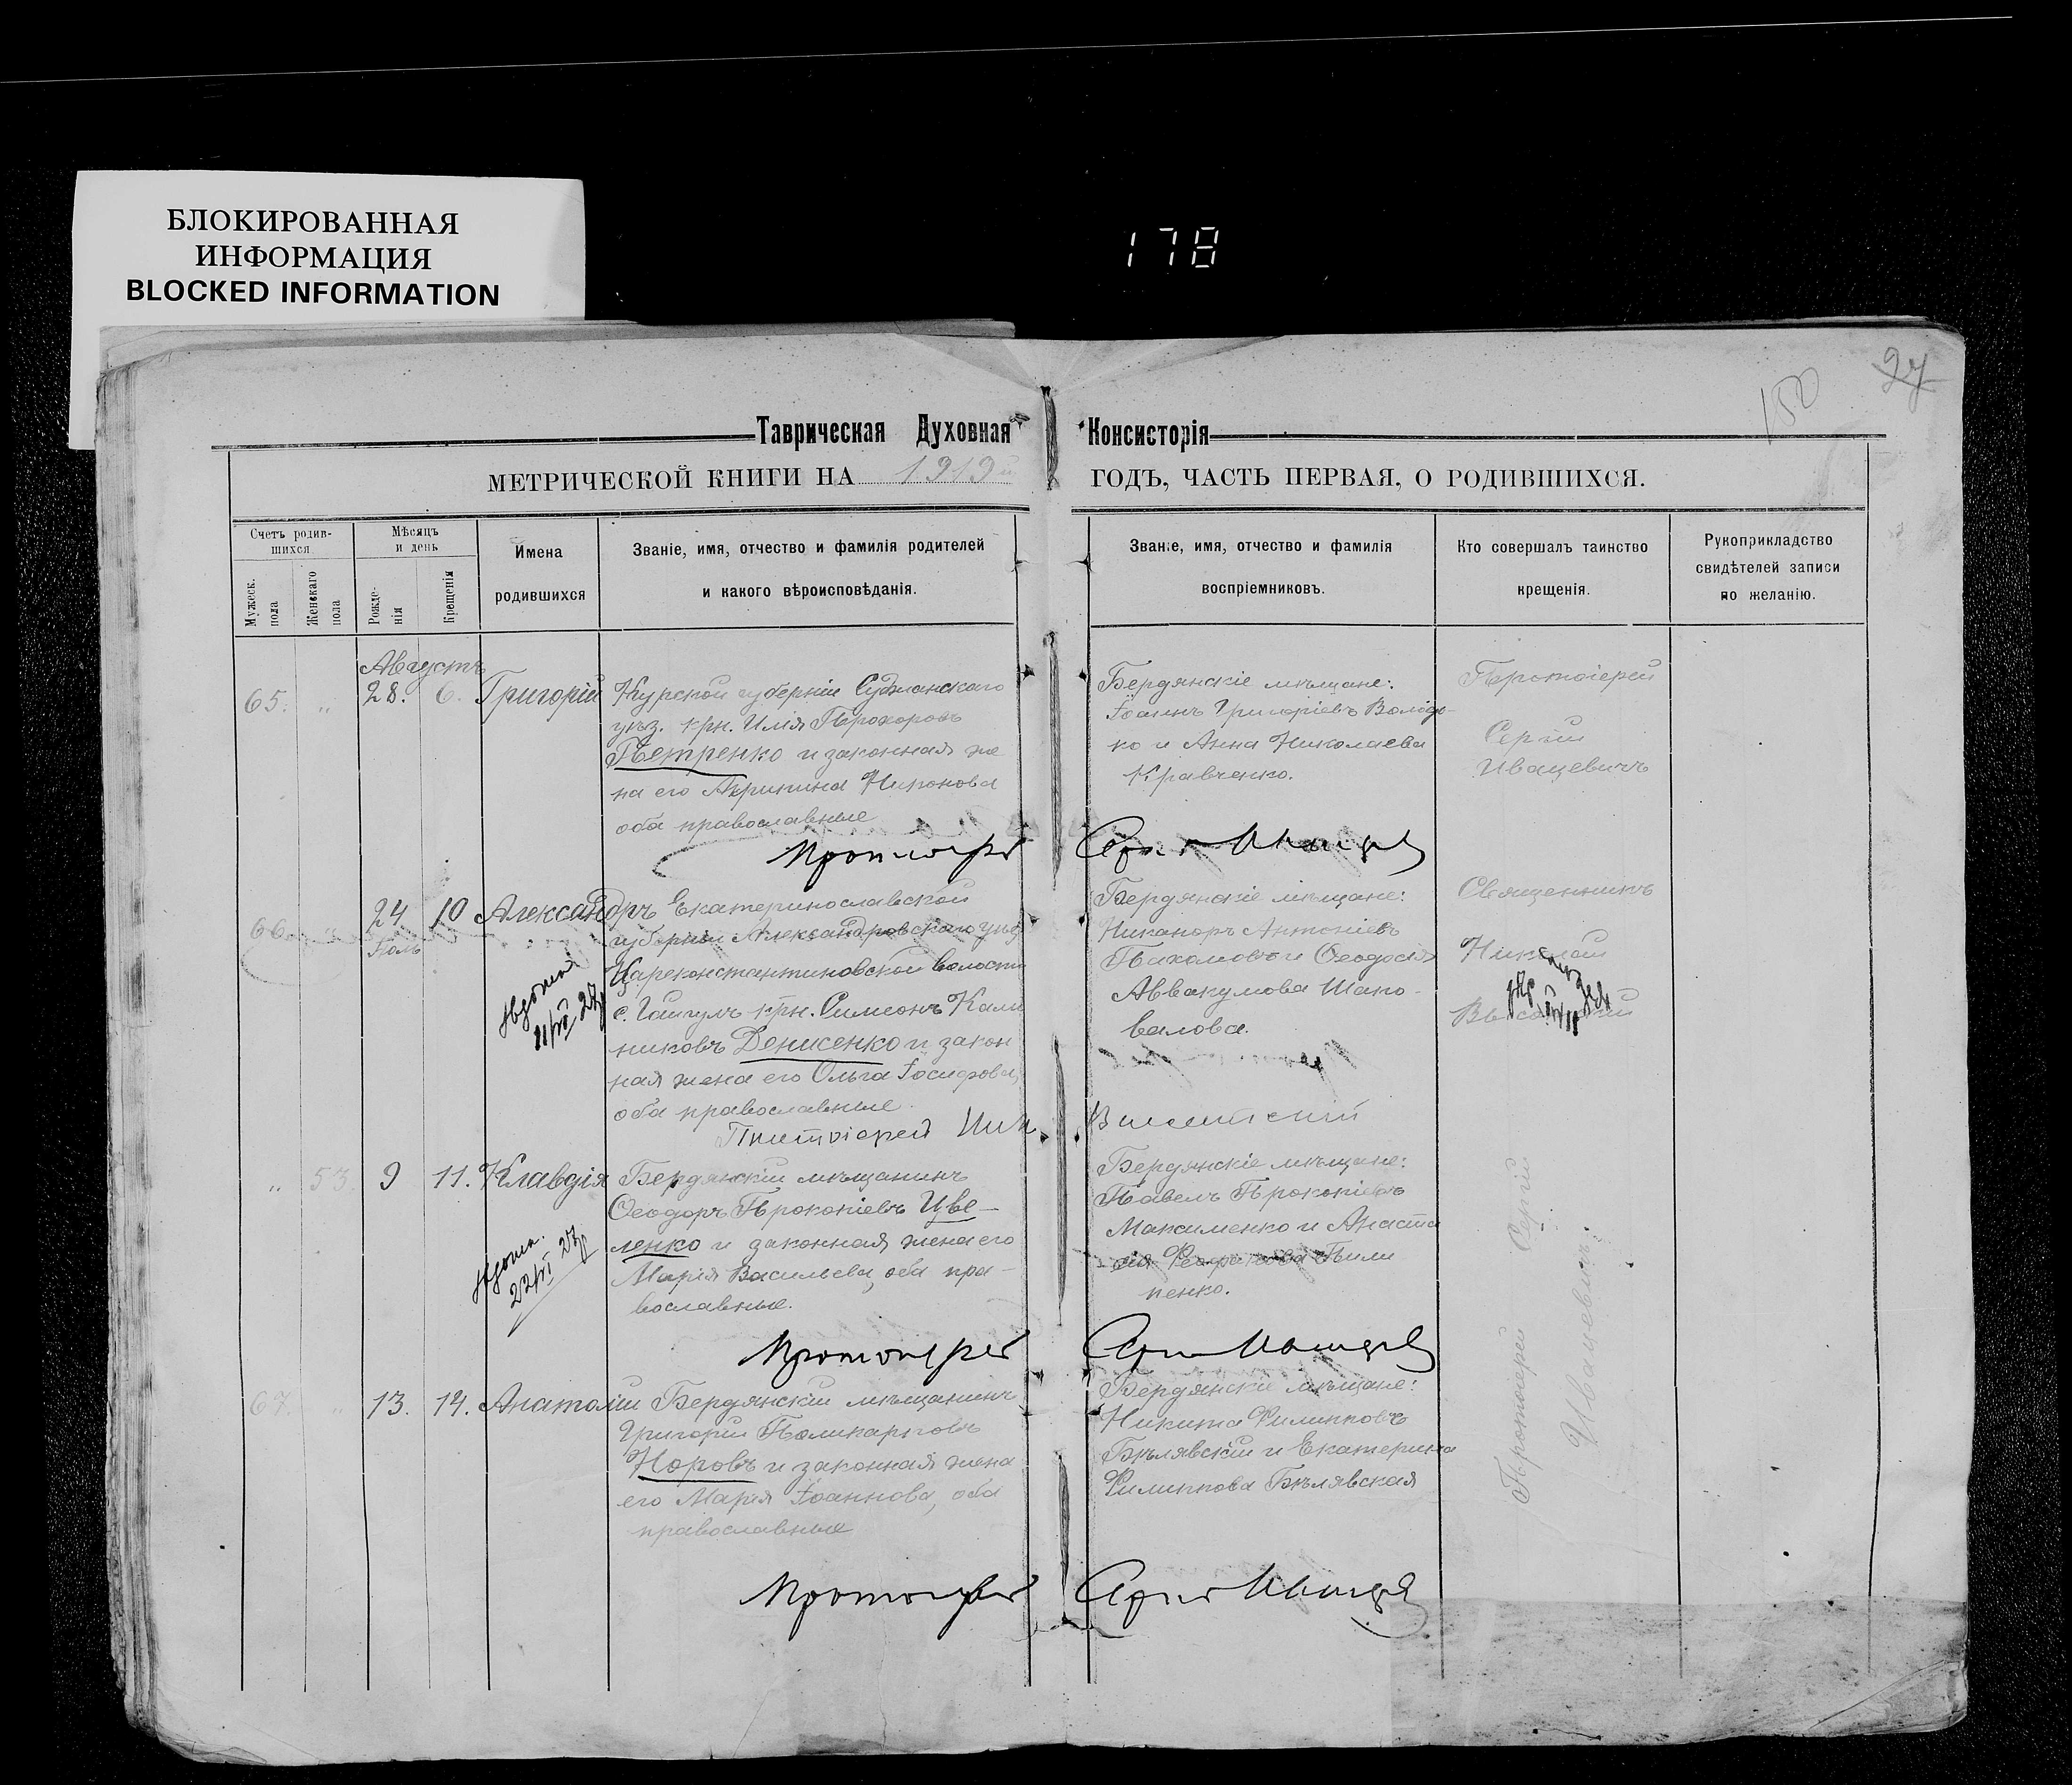 БЛОКИРОВАННАЯ
ИНФОРМАЦИЯ
BLOCKED INFORMATION
178
150
27
Таврическая Духовная Консисторія
МЕТРИЧЕСКОЙ КНИГИ НА 1919й ГОДЪ, ЧАСТЬ ПЕРВАЯ, О РОДИВШИХСЯ.
Счетъ родив-
шихся
Мужеск.
пола
Женскаго
пола
Мѣсяцъ
и день
Рожде-
нія
Крещенія
Имена
родившихся
Званіе, имя, отчество и фамилія родителей
и какого вѣроисповѣданія.
Званіе, имя, отчество и фамилія
воспріемниковъ.
Кто совершалъ таинство
крещенія.
Рукоприкладство
свидѣтелей записи
по желанію.
Августъ
65. „ 28. 6. Григорій
Курской губерніи Суджанскаго
уѣз. крн. Илія Прохоровъ
Петренко и законная же
на его Агрипина
оба православные
Бердянскіе мѣщане:
Іоаннъ Григоріевъ Володь-
ко и Анна Николаева
Кравченко.
Протоіерей
Сергій
Ивацевичъ
Протоіерей Сергій Ивацевичъ
66. „ 24 10 Александръ
Іюль
Екатеринославской
губерніи Александровскаго уѣз
Цареконстантиновской волости
с. крн. Симеонъ Кали
никовъ Денисенко и закон
ная жена его Ольга Іосифова,
оба православные.
Бердянскіе мѣщане:
Никаноръ Антоніевъ
Пахомовъ и Ѳеодосія
Аввакумова Шапо-
валова.
Священникъ
Николай
Протоіерей Ник.
„ 53. 9 11. Клавдія
Бердянскій мѣщанинъ
Ѳеодоръ Прокопіевъ Цве-
ленко и законная жена его
Марія Васильева, оба пра-
вославные.
Бердянскіе мѣщане:
Павелъ Прокопіевъ
Максименко и Анаста
сія Пили
пенко.
Протоіерей Сергій
Ивацевичъ.
Протоіерей Сергій Ивацевичъ
67. „ 13. 14. Анатолій
Бердянскій мѣщанинъ
Григорій Поликарповъ
Норовъ и законная жена
его Марія Іоаннова, оба
православные
Бердянскіе мѣщане:
Никита Филипповъ
Бѣлявскій и Екатерина
Филиппова Бѣлявская
Протоіерей Сергій Ивацевичъ